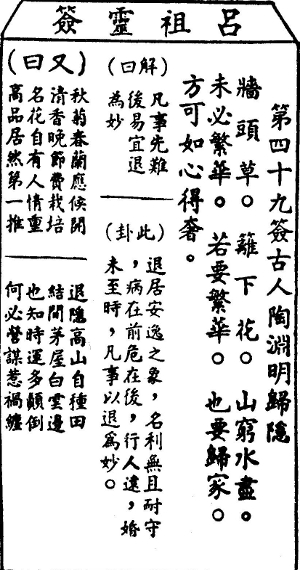 呂祖靈簽
第四十九簽古人陶淵明歸隱
牆頭草。籬下花。山窮水盡。
未必繁華。若要繁華。也要歸家。
方可如心得奢。
(解曰)
凡事先難
後易宜退
為妙
(此卦)
退居安逸之象，名利無且耐守
，病在前危在後，行人遠，婚
未至時，凡事以退爲妙。
(又曰)
秋菊春蘭應候開
清香晚節費栽培
名花自有人情重
高品居然第一推
退隱高山自種田
結間茅屋白雲邊
也知時運多顛倒
何必營謀惹禍纏